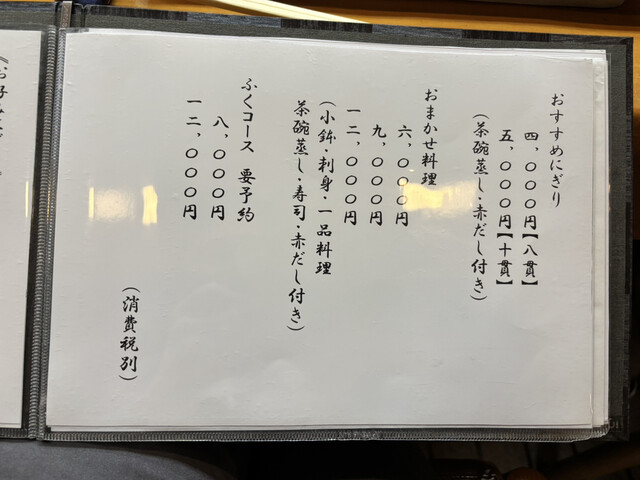 おすすめにぎり
四、〇〇〇円【八貫】
五、〇〇〇円【十貫】
（茶碗蒸し・赤だし付き）
おまかせ料理
六、〇〇〇円
九、〇〇〇円
一二、〇〇〇円
（小鉢・刺身・一品料理
茶碗蒸し・寿司・赤だし付き）
ふくコース 要予約
八、〇〇〇円
一二、〇〇〇円
（消費税別）